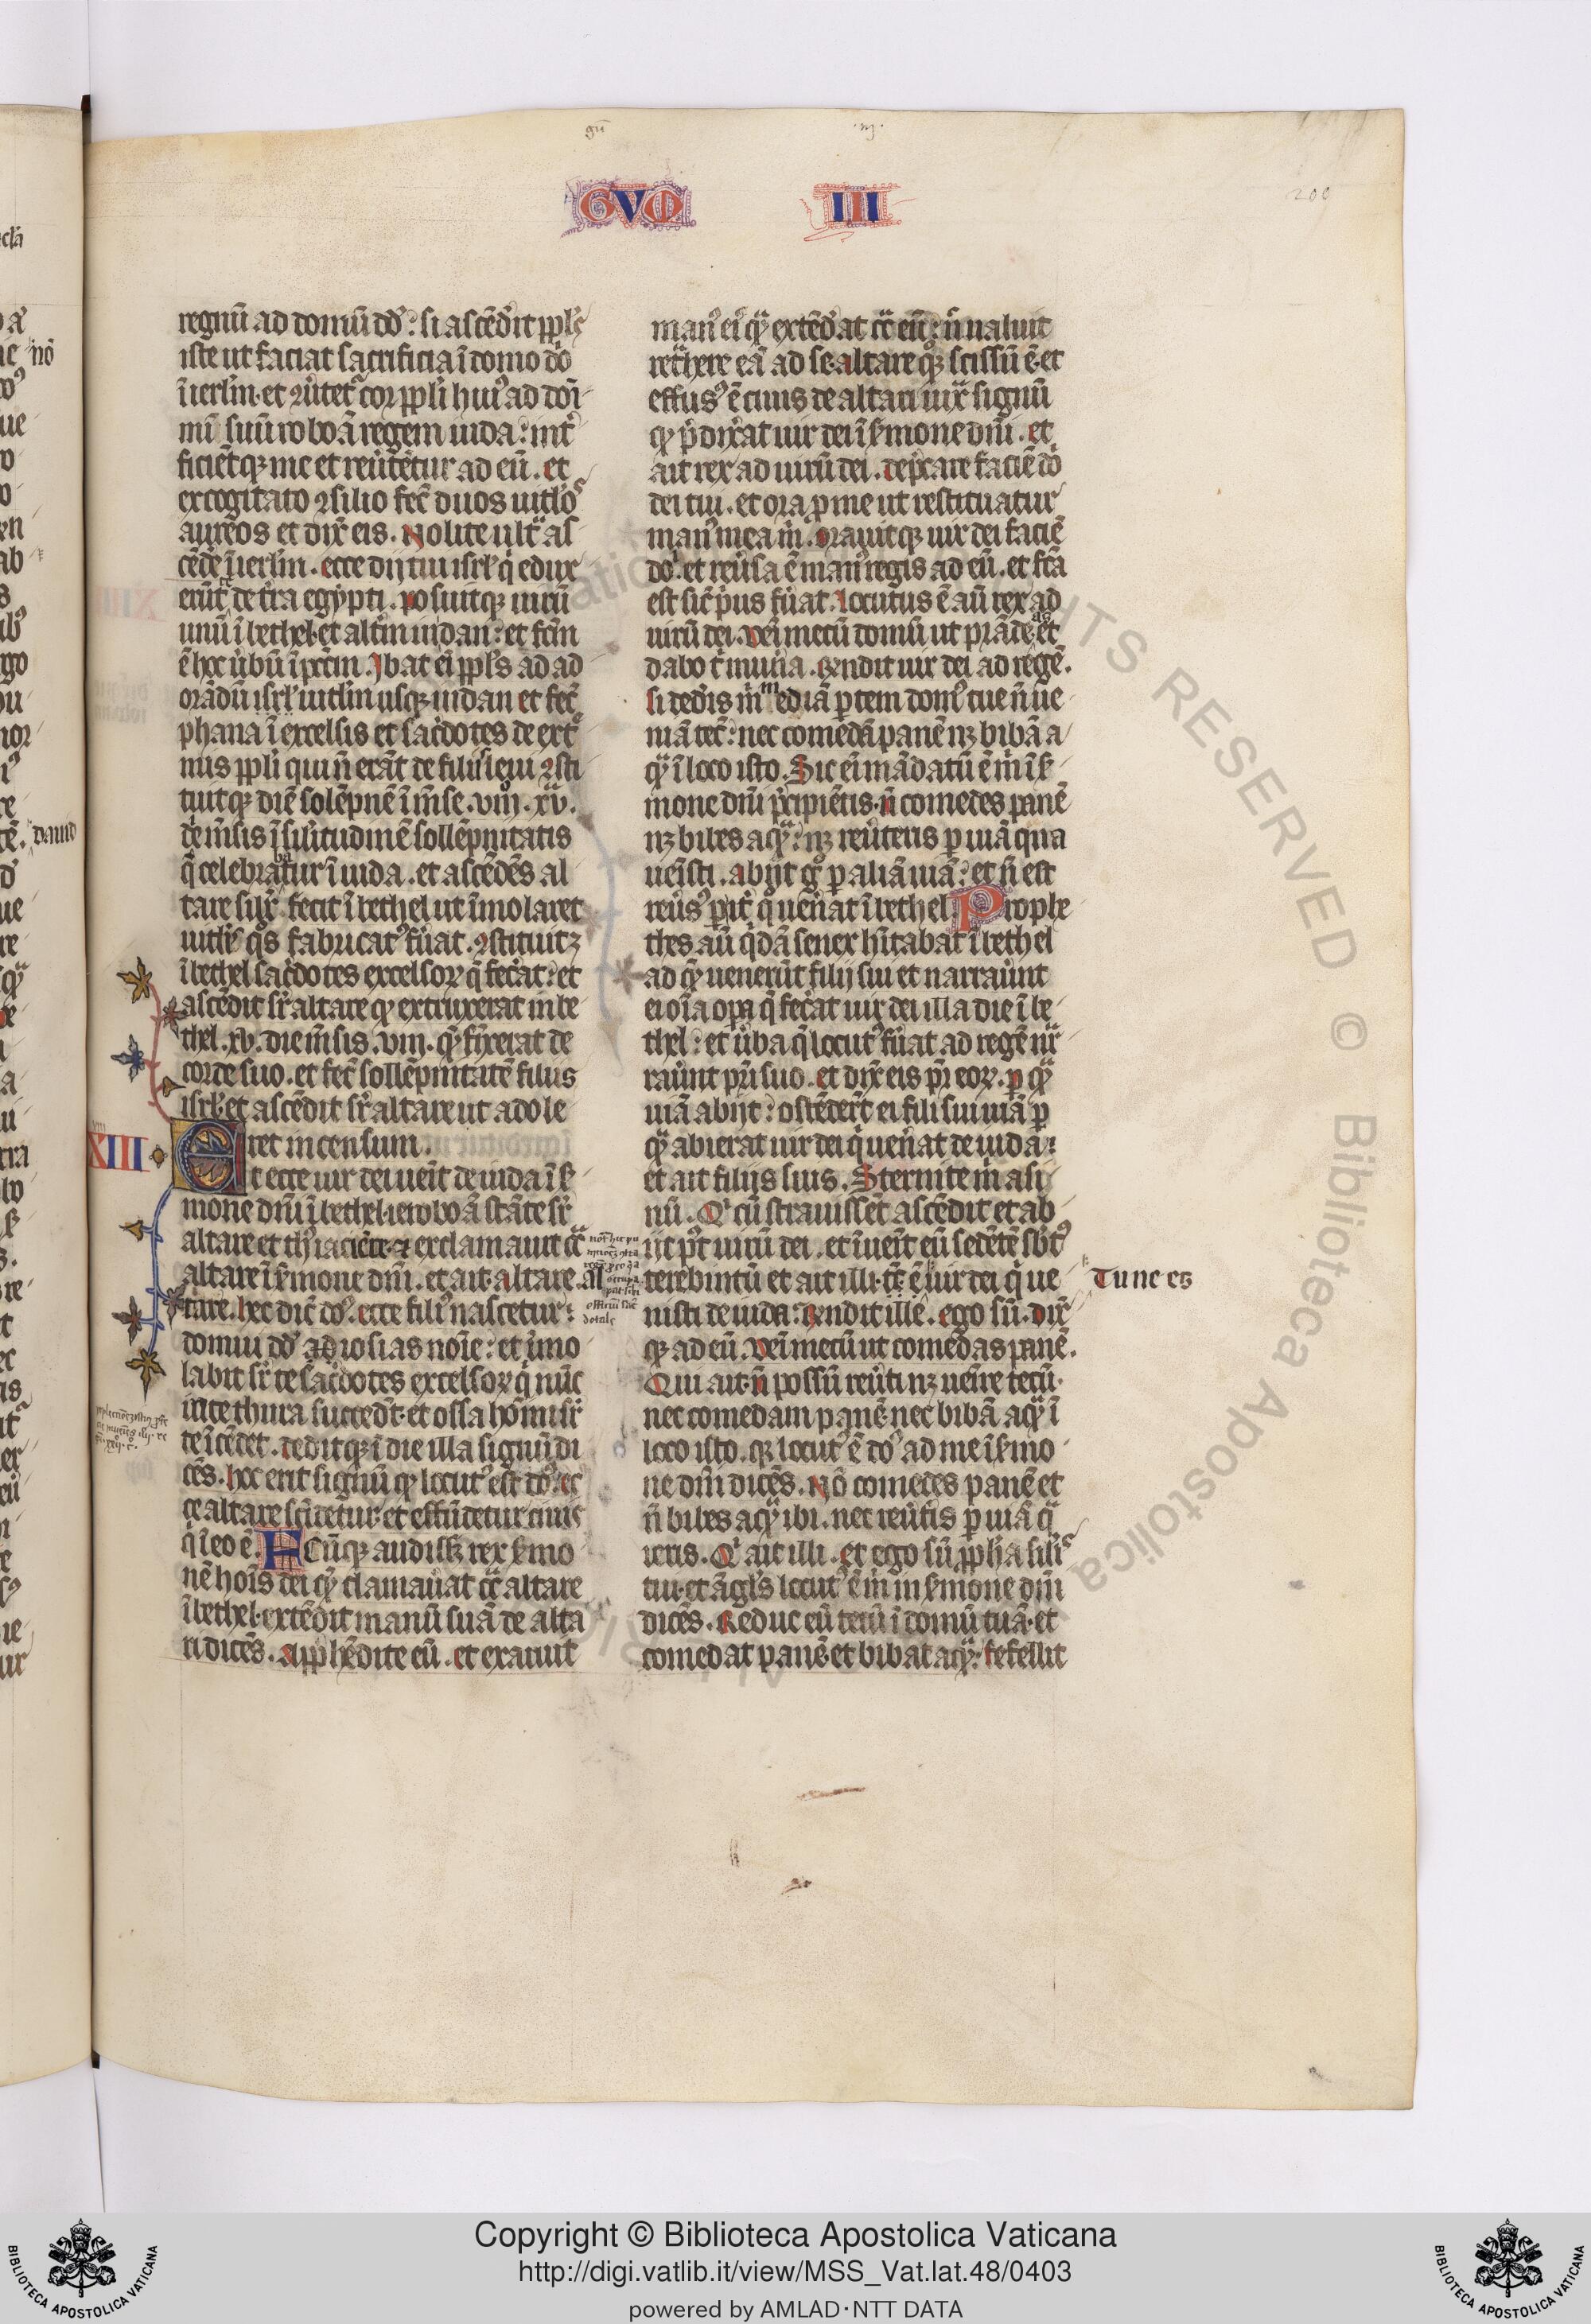 GVM III
200
regnū ad domū dd̄: si ascēd̓it ppl̓s
iste ut faciat sacrificia ī domo dn̄i
ī ierl̄m. et ꝯu̓tet᷑ cor ppl̓i huiꝰ ad dn̄i
mī suū roboā regem iuda: int̓
ficiētqꝫ me et reu̓tētur ad eū. et
excogitato ꝯsilio fec̄ duos uitl̓os
aureos et dix̄ eis. Nolite ult̓ͣ as
cēde̓ ī ierl̄m. ecce dij tui isrl̓ q̓ edux
erūt̓ de t̓ra egypti. posuitqꝫ unū
unū ī bethel et alt̓m in dan: et fc̄m
ē hoc u̓bū ī pc̄c̄m. Ibat ei̓ ppl̓s ad ad
orādū isrl̓ uitl̓m usqꝫ in dan et fec̄
phana ī excelsis et sac̓dotes de ext̓
mis ppl̓i qui n̄ erāt de filiis leui ꝯsti
tuitqꝫ diē solēpnē ī m̄se. viij. xv.
de m̄sis ī sil̓itudinē sollēpnitatis
q̄ celebrabatur ī iuda. et ascēdēs al
tare sil̓r fecit ī bethel ut īmolaret
uitl̓is q̓s fabricatꝰ fu̓at. ꝯstituitqꝫ
ī bethel sac̓dotes excelsoꝝ q̄ fec̓at: et
ascēdit sr̓ altare qd̓ extruxerat in be
thel. xv. die m̄sis. viij. qd̓ fīxerat de
corde suo. et fec̄ sollēpnitatē filiis
isrl̓. et ascēdit sr̓ altare ut adole
ret incensum.
XIII
Et ecce uir dei uēit de iuda ī s̓
mone dn̄i ī bethel. ieroboā stāte sr̓
altare et thꝰ iaciēte. et exclamauit ꝯͣ
altare ī s̓mone dn̄i. et ait. altare. al
tare. hec dic̄ dn̄s. ecce filiꝰ nascetur
domui dd̄ iosias noīe: et īmo
labit sr̓ te sac̓dotes excelsoꝝ q̓ nūc
in te thura succedt̄. et ossa hoīm sr̓
te īcēdet. deditqꝫ ī die illa signū di
cēs. hoc erit signū qd̓ locutꝰ est dn̄s. ec
ce altare scīdetur. et effūdetur cinis
q̓ ī eo ē. Hcūqꝫ audiss̄ꝫ rex s̓mo
nē hoīs dei qd̓ clamau̓at ꝯͣ altare
ī bethel. extēdit manū suā de alta
ri dicēs. app̄hēdite eū. et exaruit
manꝰ eiꝰ qͣ extēd̓at ꝯͣ eū: n̄ ualuit
ret̓here eā ad se. altare quoqꝫ scissū ē. et
effusꝰ ē cinis de altari iuxͣ signū
qd̓ p̄dix̓at uir dei ī s̓mone dn̄i. et
ait rex ad uirū dei. dep̄care faciē dn̄i
dei tui. et ora p̄ me ut restituatur
manꝰ mea m̓. Orauitqꝫ uir dei faciē
dn̄i. et reu̓sa ē manꝰ regis ad eū. et fc̄a
est sic̄ p̓us fu̓at. Locutus ē aū rex ad
uirū dei. Veī mecū domū ut prādeas et
dabo t̓ mun̓a. Rn̄dit uir dei ad regē.
si ded̓is m̓ mediā p̄tem domꝰ tue n̄ ue
niā tec̄: nec comedā panē nqꝫ bibā a
qͣ ī loco isto. Sic ei̓ mādatū ē m̓ ī s̓
mone dn̄i p̄cipiētis. n̄ comedes panē
nqꝫ bibes aqͣ: nqꝫ reu̓teris p̄ uiā qua
uēisti. abijt g̊ p̄ aliā uiā: et n̄ est
reu̓sꝰ p̄ it̓ q̊ uen̓at ī bethel Prophe
thes aū q̓dā senex hītabat ī bethel
ad qͣ uenerūt filij sui et narrau̓unt
ei oīa opa q̄ fec̓at uir dei illa die ī be
thel: et u̓ba q̄ locutꝰ fu̓at ad regē nr̓
rau̓unt pr̄i suo. et dix̄ eis pr̄ eoꝝ. p̄ qͣ
uiā abijt: ostēder̄t ei fili sui uiā p̄
qͣ abierat uir dei q̓ uen̓at de iuda:
et ait filijs suis. Sternite m̓ asi
nū. Q̓ cū strauissēt ascēdit et ab
ijt pꝰt uirū dei. et īuēit eū sedētē sbtꝰ
terebintū et ait illi. tc̄ ē uir dei q̓ ue
Tu ne es
nisti de iuda: Rn̄dit ille. ego sū. dix̄
qꝫ ad eū. Veī mecū ut comedas panē.
Qui ait. n̄ possū reu̓ti nqꝫ uen̄re tecū.
nec comedam panē. nec bibā aqͣ ī
loco isto. qꝫ locutꝰ ē dn̄s ad me ī s̓mo
ne dn̄i dicēs. Nō comedes panē et
n̄ bibes aqͣ ibi. nec reu̓t̓is p̄ uiā qͣ
ieris. Q̓ ait illi. et ego sū ppha sil̓is
tui. et āgl̓s locutꝰ ē m̓ in s̓mone dn̄i
dicēs. Reduc eū tecū ī domū tuā. et
comedat panē et bibat aqͣ. fefellit
RIGHTS RESERVED © Biblioteca Apostolica
Copyright © Biblioteca Apostolica Vaticana
http://digi.vatlib.it/view/MSS_Vat.lat.48/0403
powered by AMLAD·NTT DATA
BIBLIOTECA APOSTOLICA VATICANA
BIBLIOTECA APOSTOLICA VATICANA